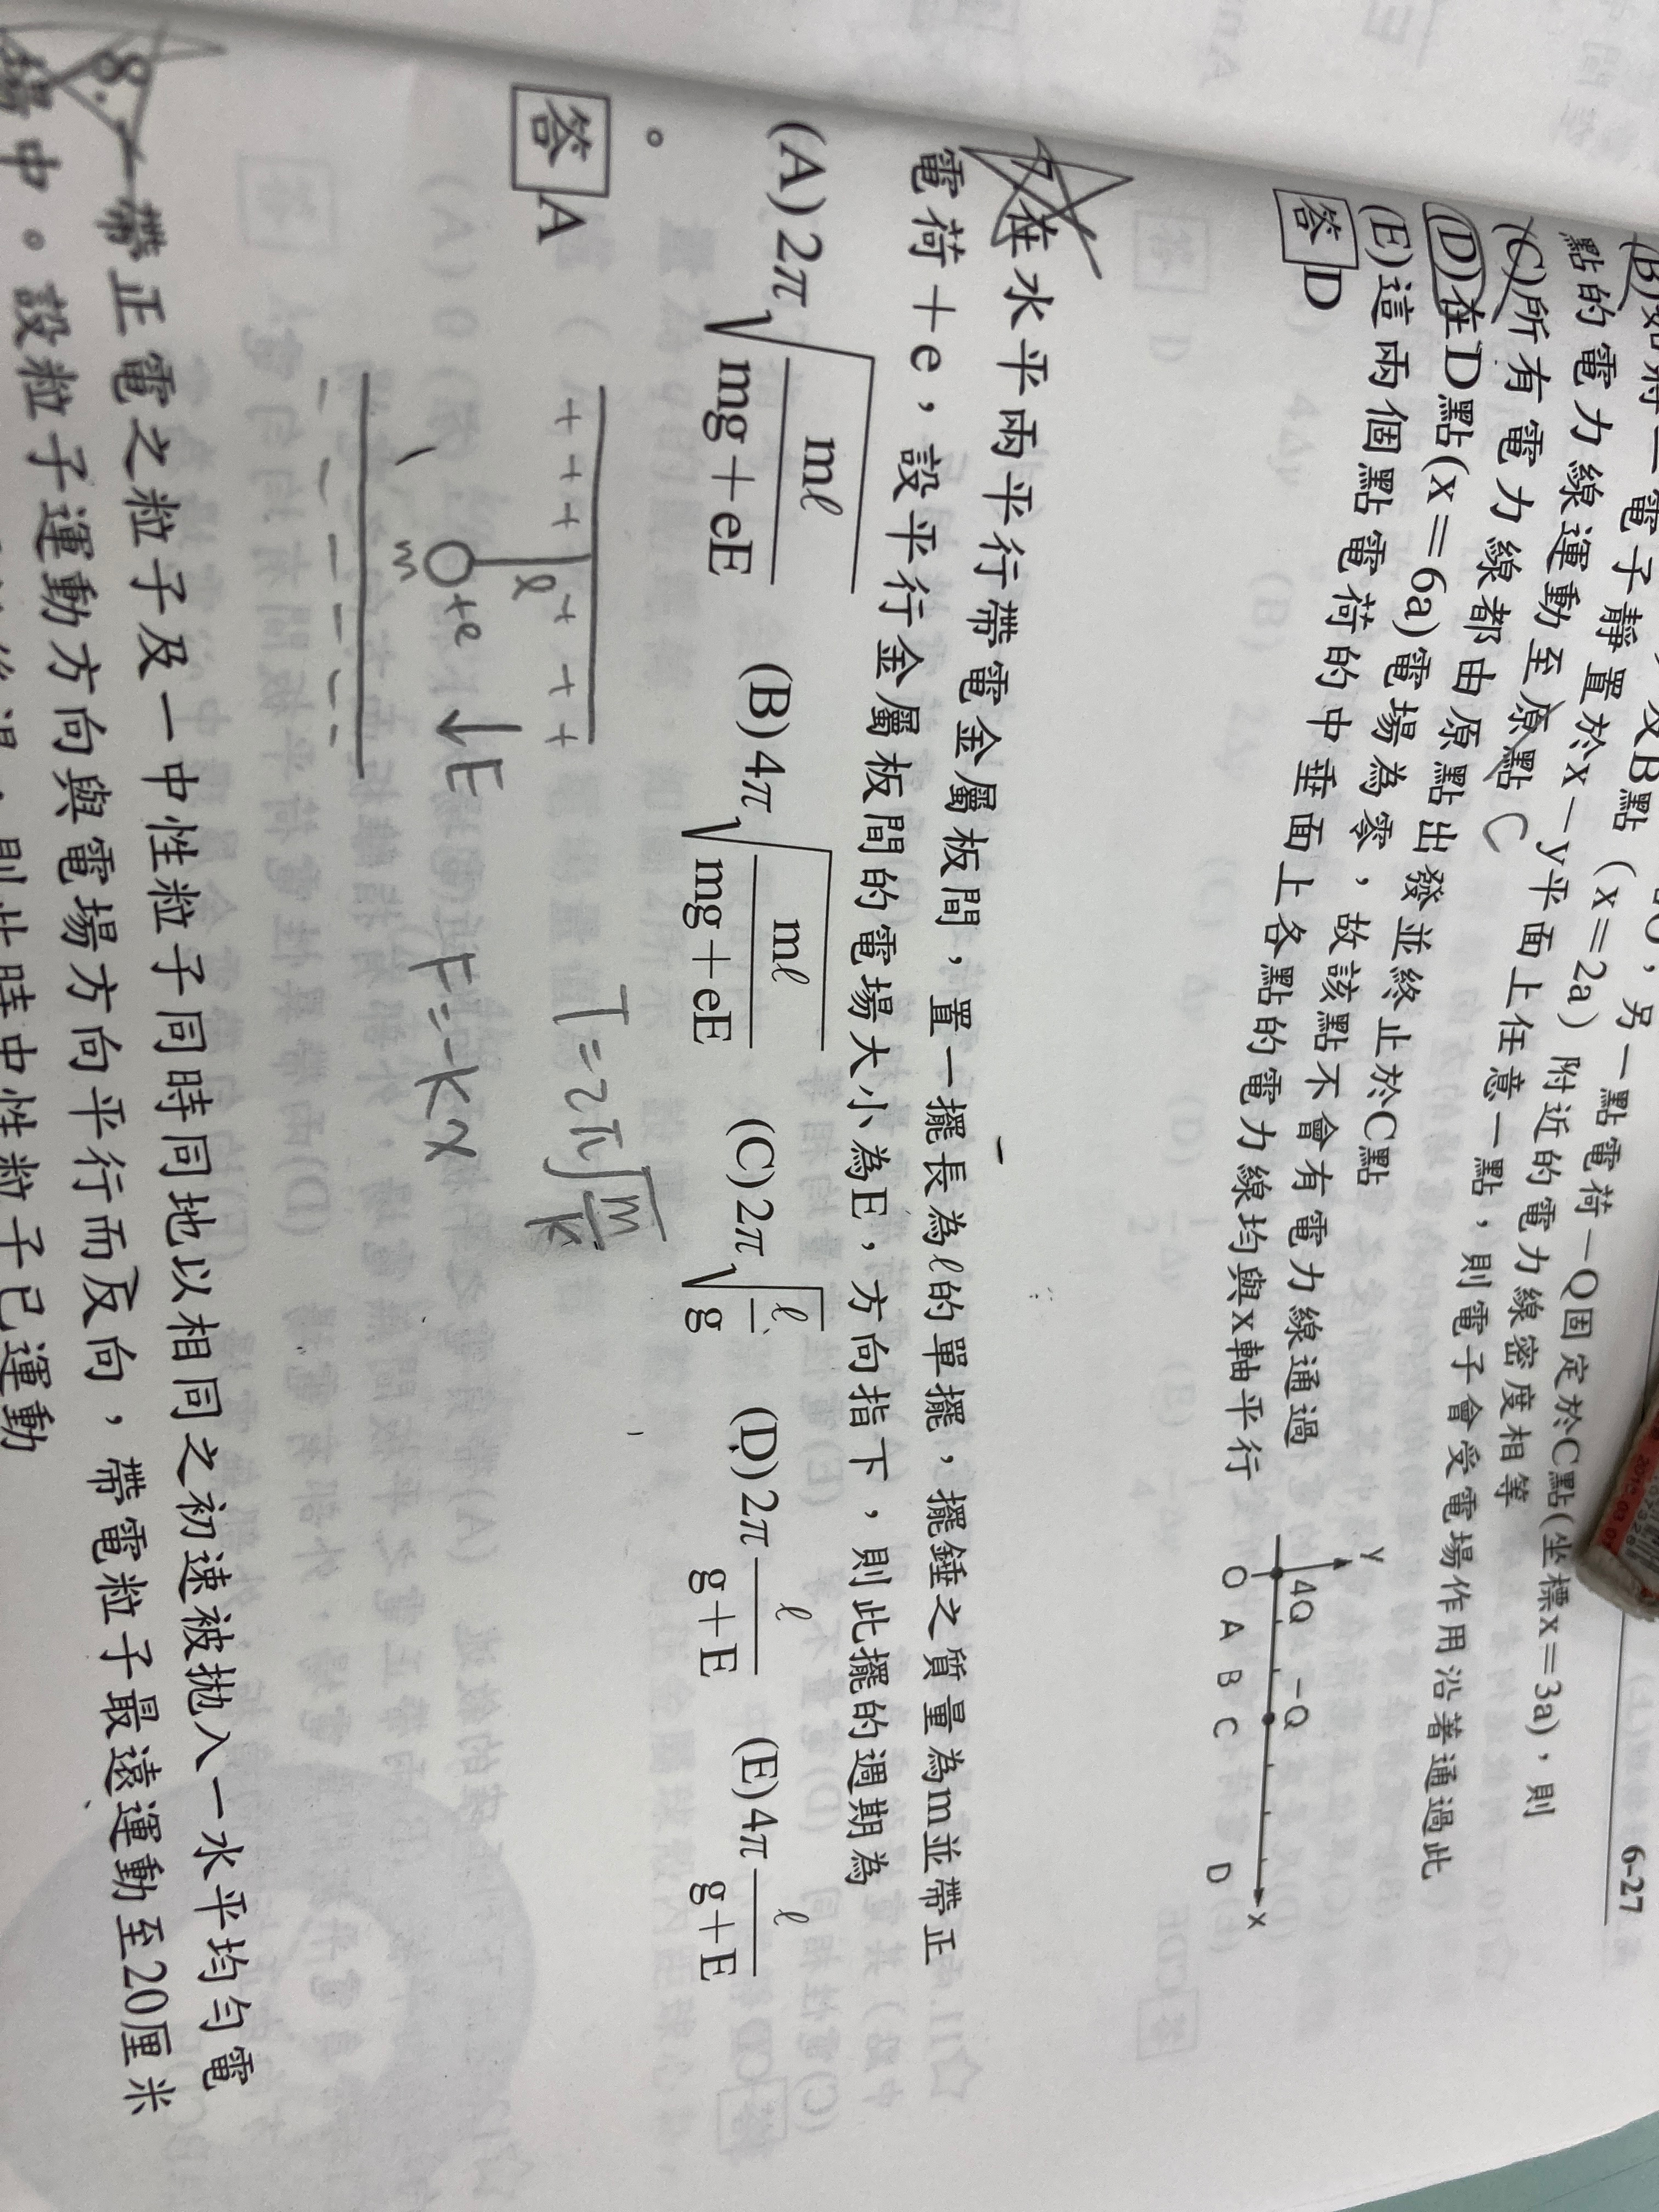 6-27
點電荷－Q固定於C點(坐標x＝3a)，則
點（x＝2a）附近的電力線密度相等
電子靜置於x－y平面上任意一點，則電子會受電場作用沿著通過此
點的電力線運動至原點 C
(C)所有電力線都由原點出發並終止於C點
(D)在D點(x＝6a)電場為零，故該點不會有電力線通過
(E)這兩個點電荷的中垂面上各點的電力線均與x軸平行
答 D
y
4Q －Q
O A B C D x
7.在水平兩平行帶電金屬板間，置一擺長為ℓ的單擺，擺錘之質量為m並帶正
電荷＋e，設平行金屬板間的電場大小為E，方向指下，則此擺的週期為
(A)2π√(mℓ/(mg＋eE)) (B)4π√(mℓ/(mg＋eE)) (C)2π√(ℓ/g) (D)2π ℓ/(g＋E) (E)4π ℓ/(g＋E)
。
答 A
+ + + + + +
ℓ
+e
m
↓E
T=2π√(m/k)
F=-kx
8.一帶正電之粒子及一中性粒子同時同地以相同之初速被拋入一水平均勻電
場中。設粒子運動方向與電場方向平行而反向，帶電粒子最遠運動至20厘米
則此時中性粒子已運動